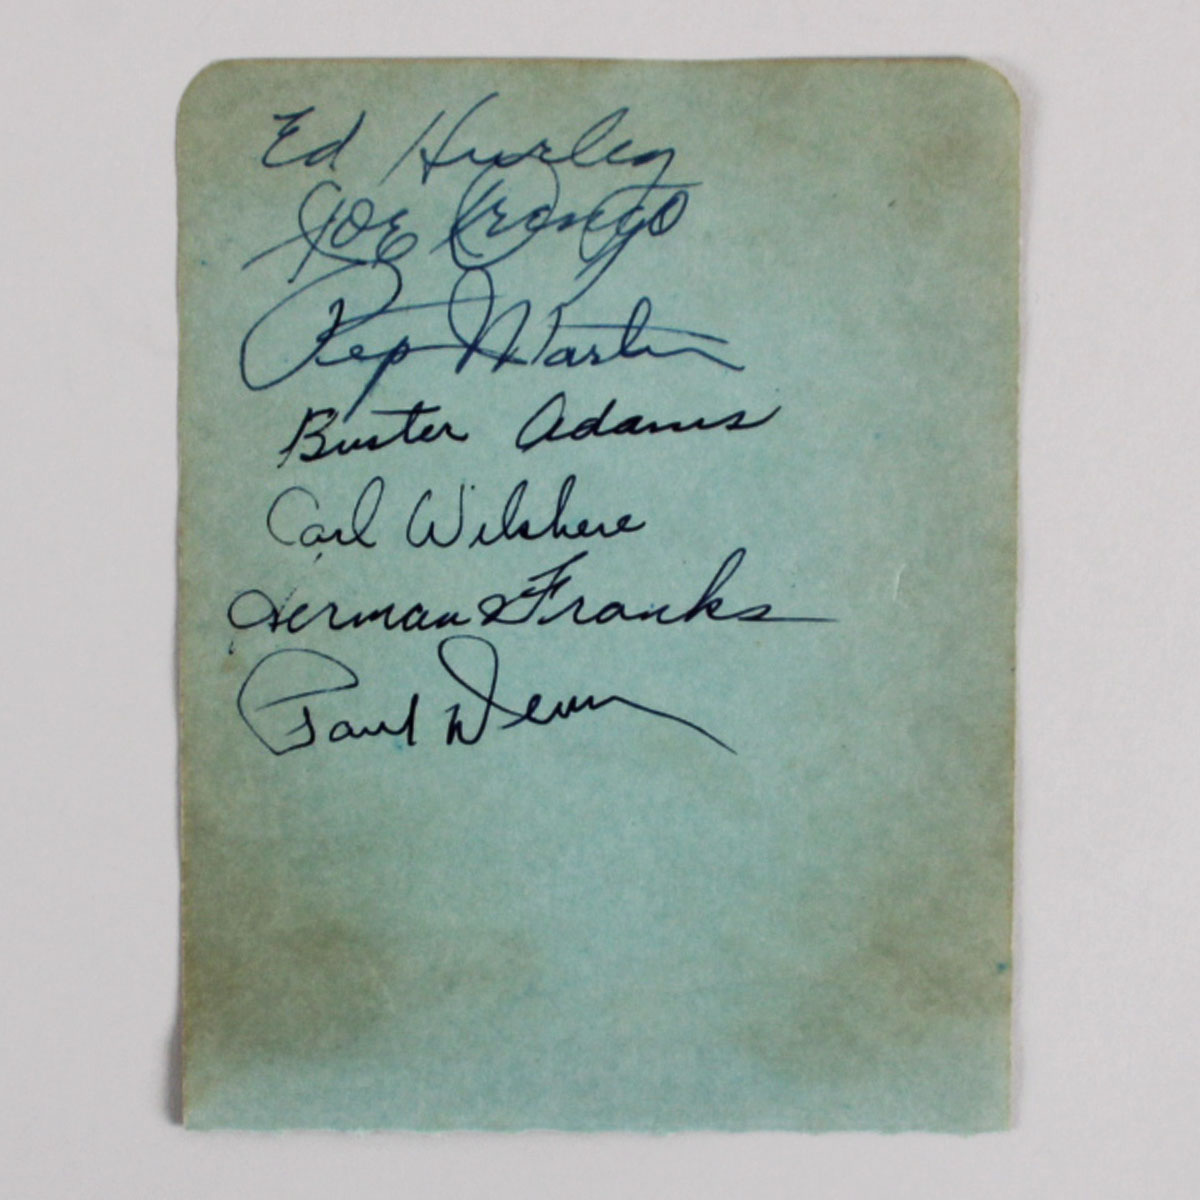 Ed Hurley
Joe Orengo
Pep Martin
Buster Adams
Carl Wilshere
Herman Franks
Paul Derringer